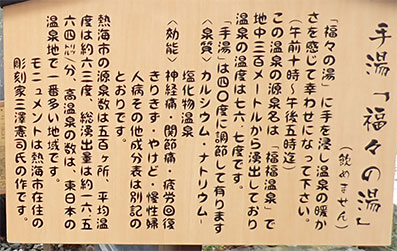 手湯「福々の湯」
(飲めません)
「福々の湯」に手を浸し温泉の暖か
さを感じて幸わせになって下さい。
(午前十時~午後五時迄)
この温泉の源泉名は「福福温泉」で
地中三百メートルから湧出しており
温泉の温度は六七・七度です。
「手湯」は四〇度に調節して有ります
〈泉質〉カルシウム・ナトリウム-
塩化物温泉
〈効能〉神経痛・関節痛・疲労回復
きりきず・やけど・慢性婦
人病その他成分表は別記の
とおりです。
熱海市の源泉数は五百ヶ所、平均温
度は約六三度、総湧出量は約一六五
六四㍑/分、高温泉の数は、東日本の
温泉地で一番多い地域です。
モニュメントは熱海市在住の
彫刻家三澤憲司氏の作です。